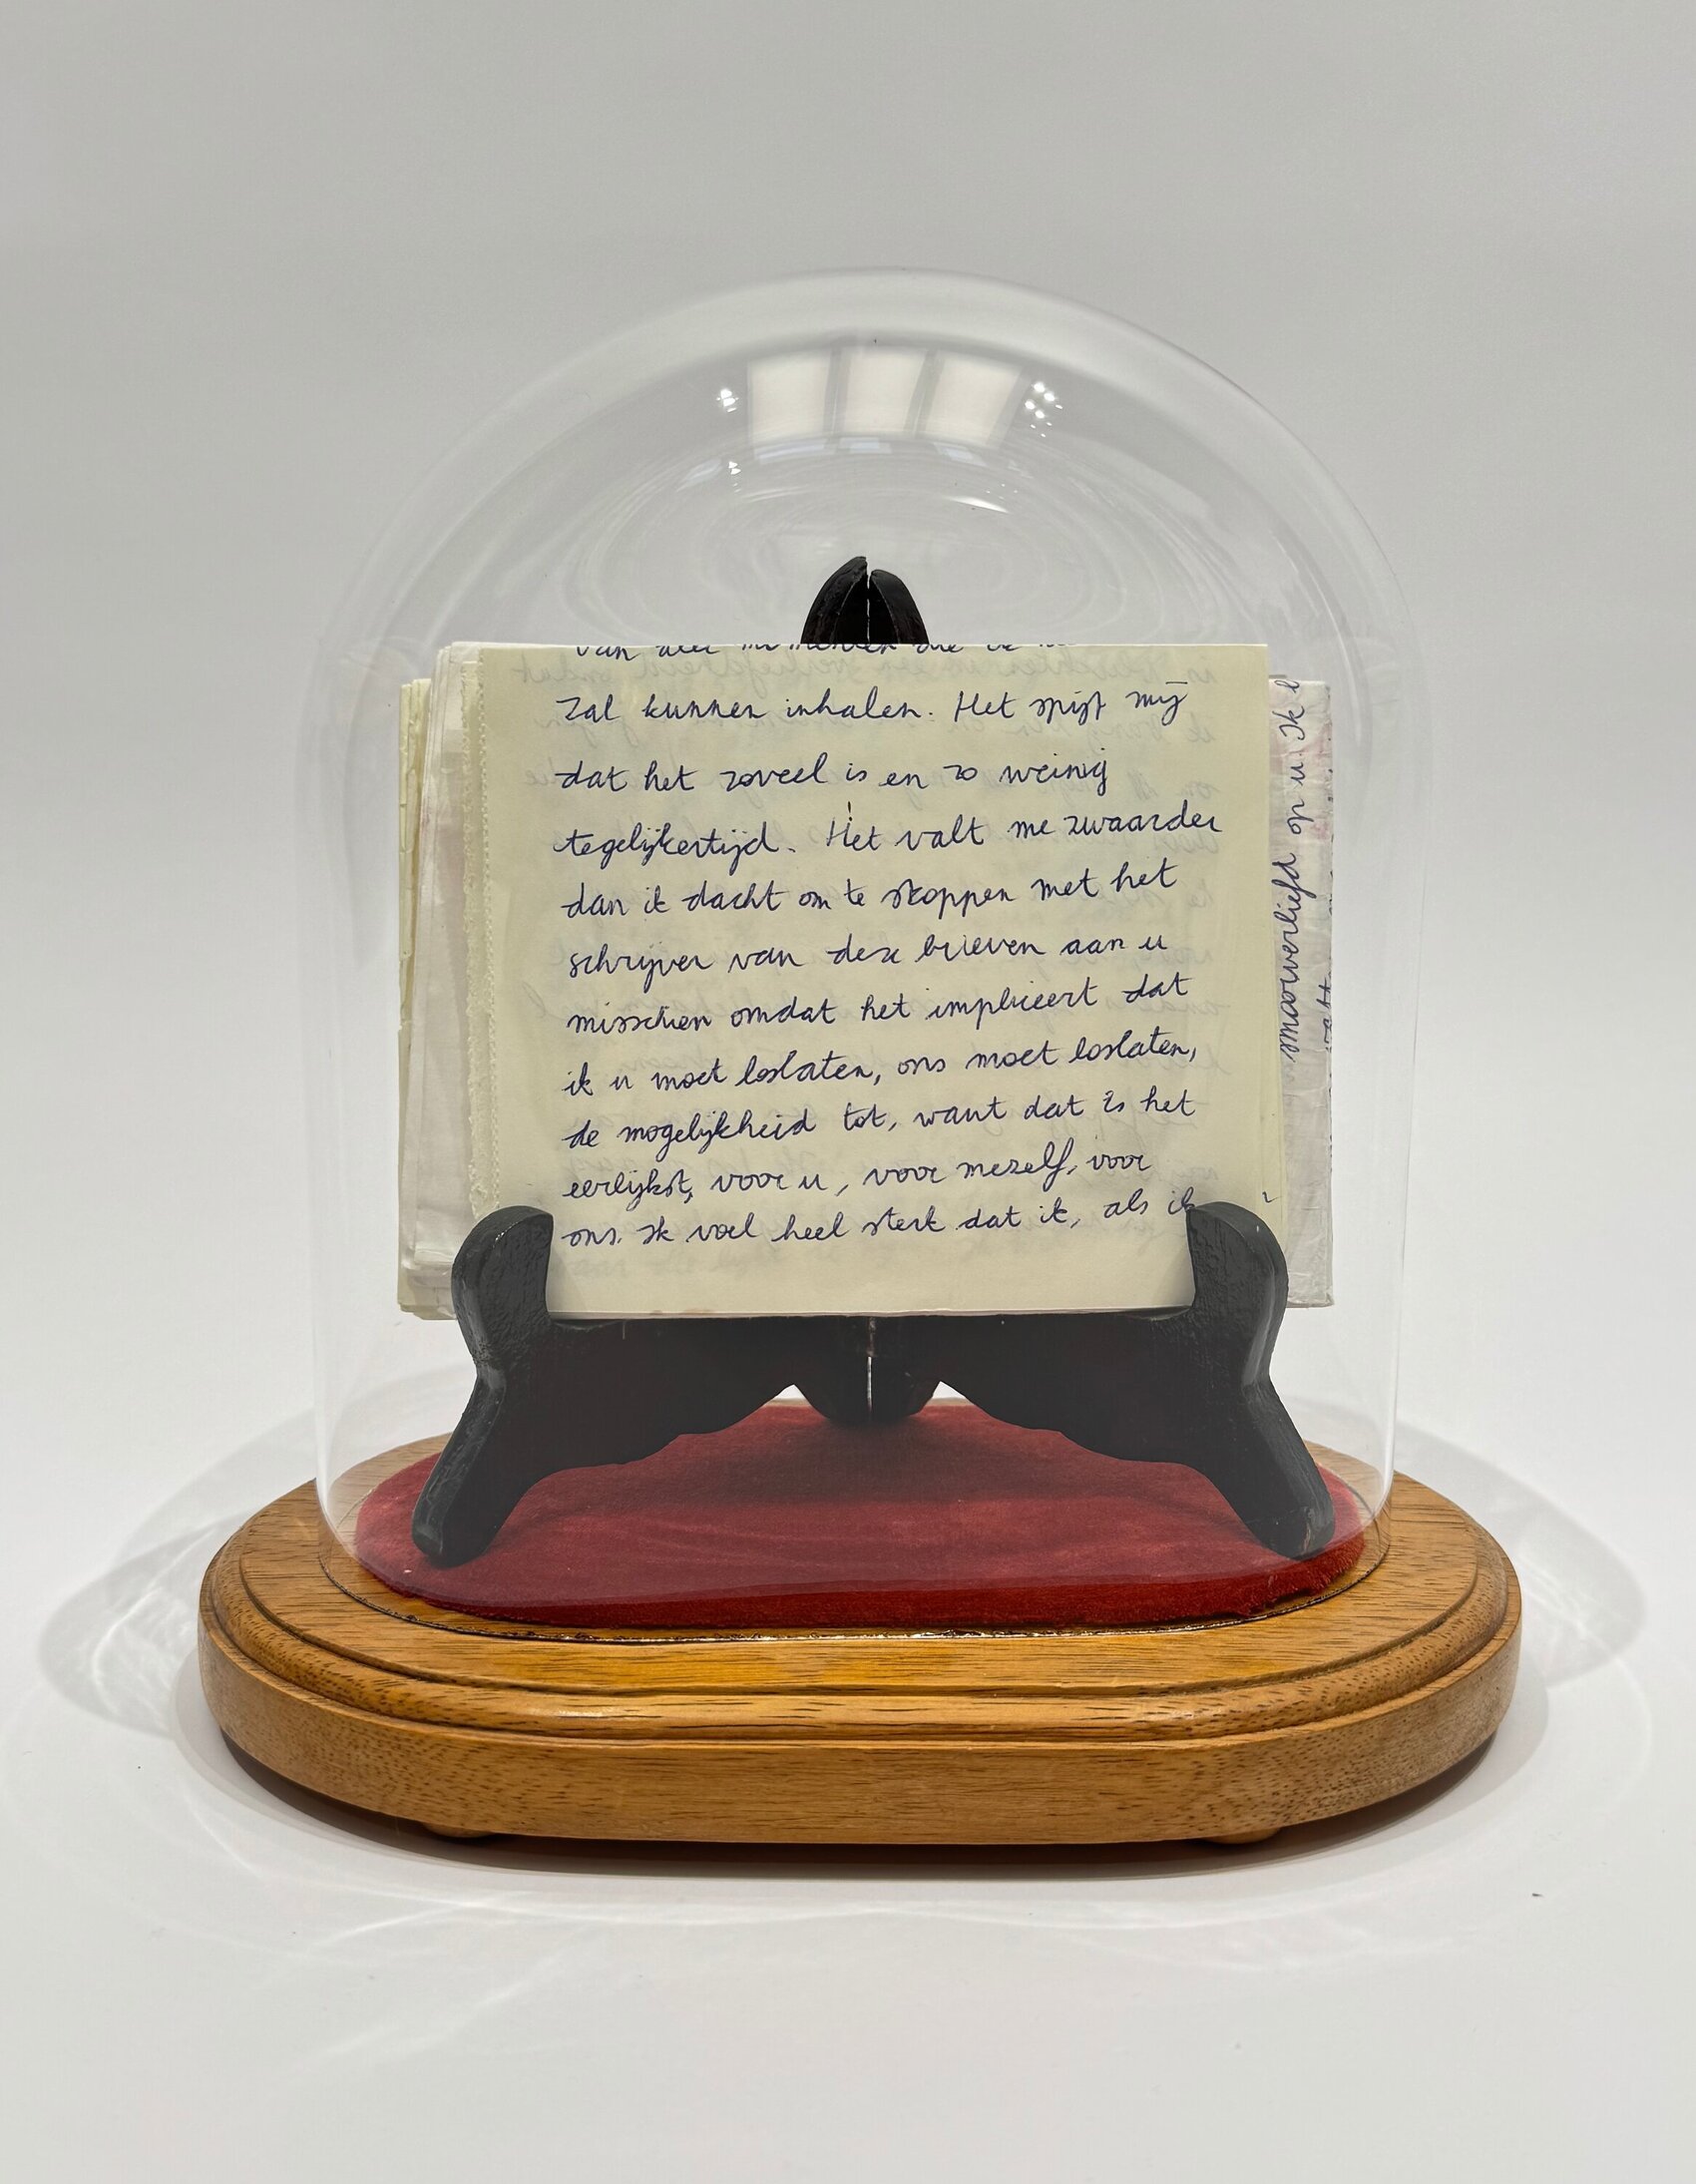 van alle momenten die ik
zal kunnen inhalen. Het spijt mij
dat het zoveel is en zo weinig
tegelijkertijd. Het valt me zwaarder
dan ik dacht om te stoppen met het
schrijven van deze brieven aan u
misschien omdat het impliceert dat
ik u moet loslaten, ons moet loslaten,
de mogelijkheid tot, want dat is het
eerlijkst, voor u, voor mezelf, voor
ons. Ik voel heel sterk dat ik, als ik
smoorverliefd op u. Ik